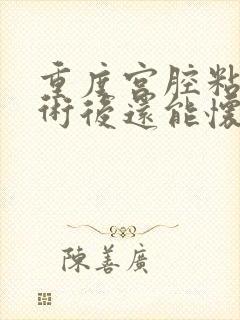 重度宮腔粘
術後還能懷
陳善廣